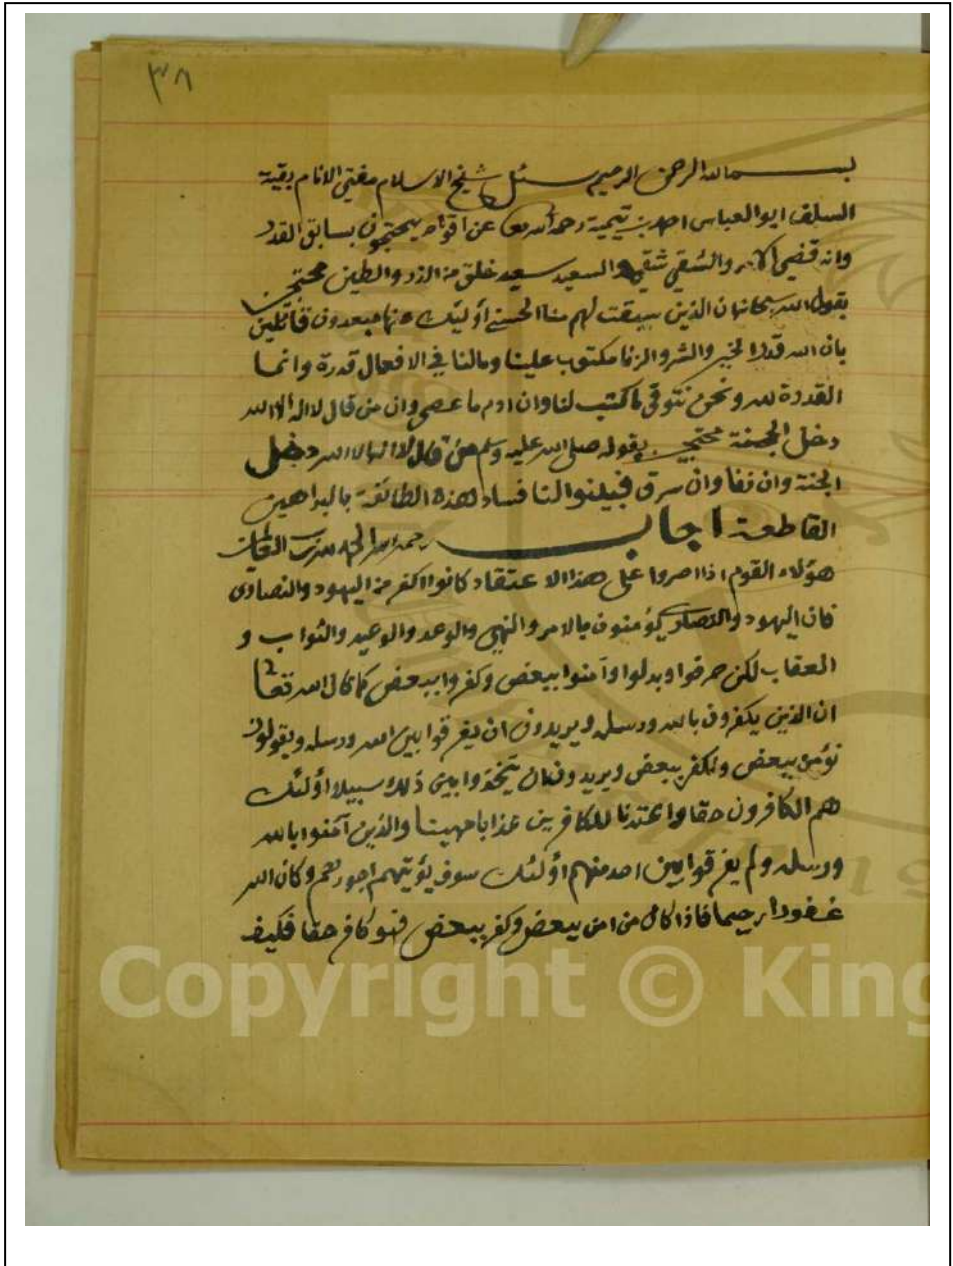 ٣٨
بسم الله الرحمن الرحيم سئل شيخ الاسلام مفتي الانام بقية
السلف ابو العباس احمد بن تيمية رحمه الله تعا عن اقوام يحتجون بسابق القدر
وانه قضي الامر والشقي شقي والسعيد سعيد خلق من الذر والطين محتجين
بقول الله سبحانه ان الذين سبقت لهم منا الحسنى أولئك عنها مبعدون قائلين
بان الله قدر الخير والشر والزنا مكتوب علينا ومالنا في الافعال قدرة وانما
القدرة لله ونحن نتوقى ما كتب لنا وان ادم ما عصى وان من قال لا اله الا الله
دخل الجنة محتجين بقوله صلى الله عليه وسلم من قال لا اله الا الله دخل
الجنة وان زنا وان سرق فبينوا لنا فساد هذه الطائفة بالبراهين
القاطعة اجاب رحمه الله الحمد لله رب العالمين
هؤلاء القوم اذا اصروا على هذا الاعتقاد كانوا اكفر من اليهود والنصارى
فان اليهود والنصارى يؤمنون بالامر والنهي والوعد والوعيد والثواب و
العقاب لكن حرفوا وبدلوا وآمنوا ببعض وكفروا ببعض كما قال الله تعا
ان الذين يكفرون بالله ورسله ويريدون ان يفرقوا بين الله ورسله ويقولون
نؤمن ببعض ونكفر ببعض ويريدون ان يتخذوا بين ذلك سبيلا أولئك
هم الكافرون حقا واعتدنا للكافرين عذابا مهينا والذين آمنوا بالله
ورسله ولم يفرقوا بين احد منهم أولئك سوف يؤتيهم اجورهم وكان الله
غفورا رحيما فاذا كان من امن ببعض وكفر ببعض فهو كافر حقا فكيف
Copyright © King